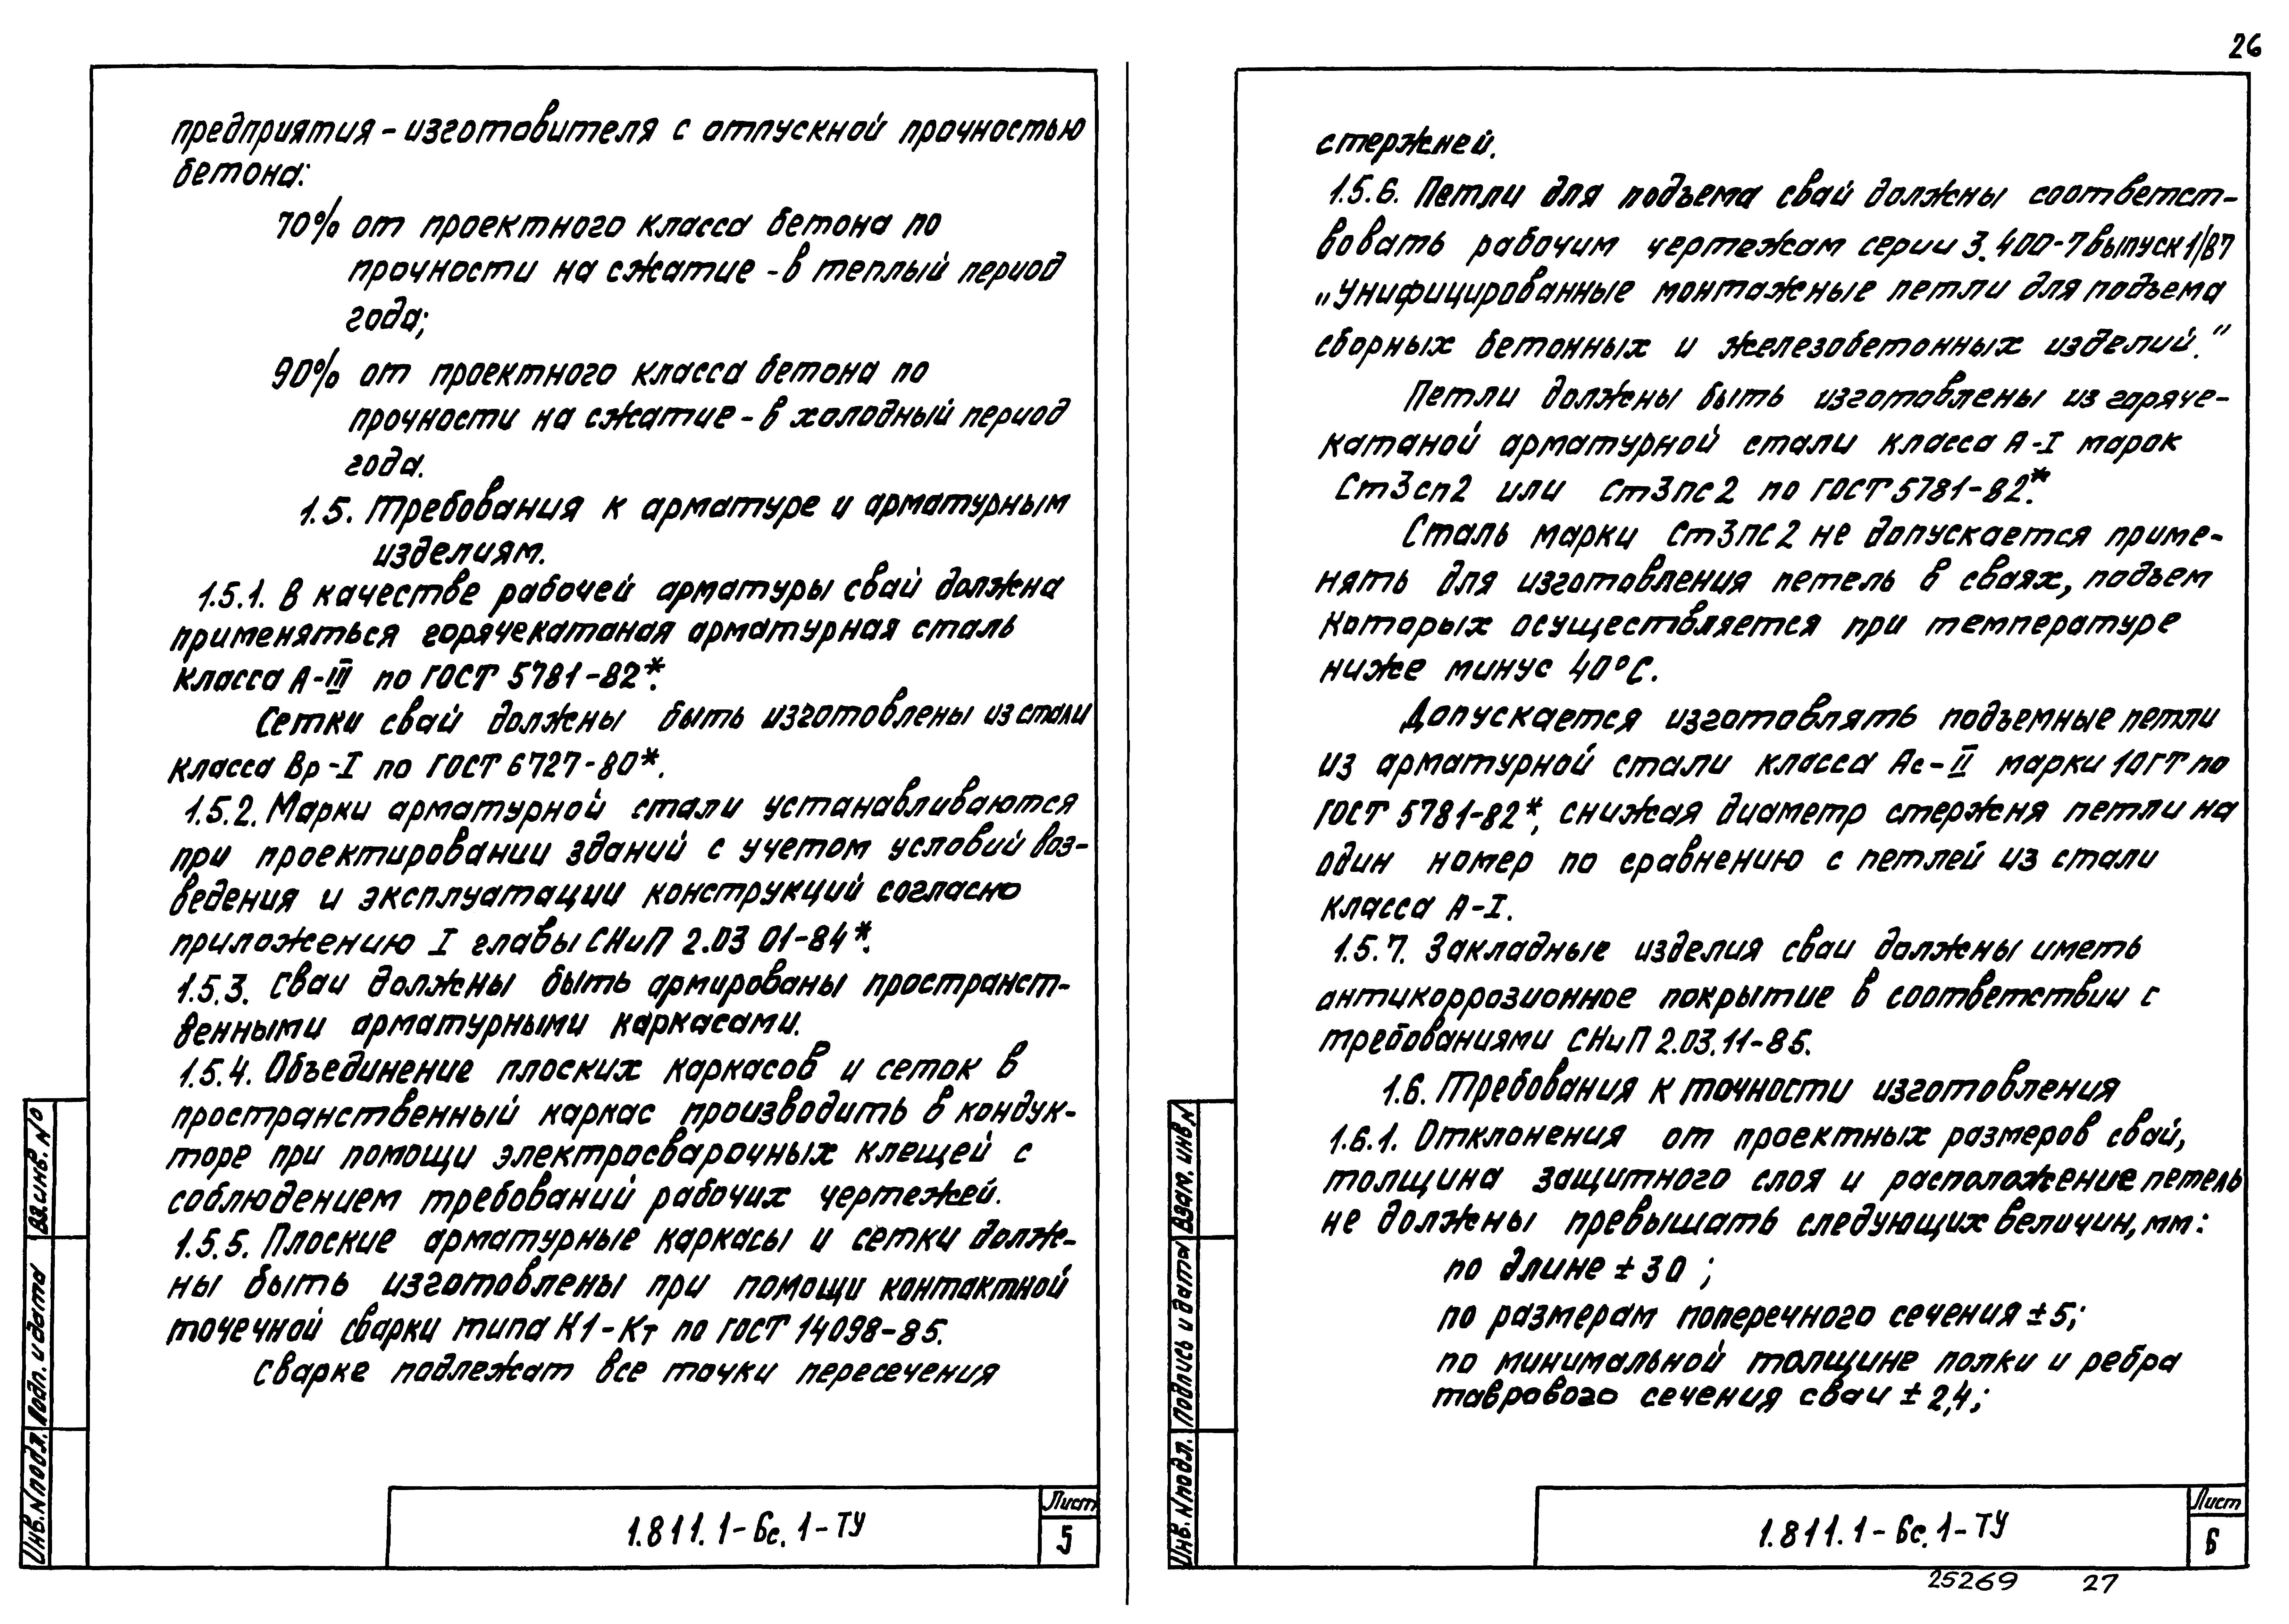 26
предприятия - изготовителя с отпускной прочностью
бетона:
70% от проектного класса бетона по
прочности на сжатие - в теплый период
года;
90% от проектного класса бетона по
прочности на сжатие - в холодный период
года.
1.5. Требования к арматуре и арматурным
изделиям.
1.5.1. В качестве рабочей арматуры свай должна
применяться горячекатаная арматурная сталь
класса А-III по ГОСТ 5781-82*.
Сетки свай должны быть изготовлены из стали
класса Вр-I по ГОСТ 6727-80*.
1.5.2. Марки арматурной стали устанавливаются
при проектировании зданий с учетом условий воз-
ведения и эксплуатации конструкций согласно
приложению I главы СНиП 2.03 01-84*.
1.5.3. Сваи должны быть армированы пространст-
венными арматурными каркасами.
1.5.4. Объединение плоских каркасов и сеток в
пространственный каркас производить в кондук-
торе при помощи электросварочных клещей с
соблюдением требований рабочих чертежей.
1.5.5. Плоские арматурные каркасы и сетки долж-
ны быть изготовлены при помощи контактной
точечной сварки типа К1-Кт по ГОСТ 14098-85.
Сварке подлежат все точки пересечения
Вз.инв. №
Подп. и дата
Инв. № подл.
1.811.1-6с.1-ТУ
Лист
5
стержней.
1.5.6. Петли для подъема свай должны соответст-
вовать рабочим чертежам серии 3.400-7 выпуск 1/87
„Унифицированные монтажные петли для подъема
сборных бетонных и железобетонных изделий."
Петли должны быть изготовлены из горяче-
катаной арматурной стали класса А-I марок
Ст3сп2 или Ст3пс2 по ГОСТ 5781-82*.
Сталь марки Ст3пс2 не допускается приме-
нять для изготовления петель в сваях, подъем
которых осуществляется при температуре
ниже минус 40°С.
Допускается изготовлять подъемные петли
из арматурной стали класса Ас-II марки 10ГТ по
ГОСТ 5781-82*, снижая диаметр стержня петли на
один номер по сравнению с петлей из стали
класса А-I.
1.5.7. Закладные изделия сваи должны иметь
антикоррозионное покрытие в соответствии с
требованиями СНиП 2.03.11-85.
1.6. Требования к точности изготовления
1.6.1. Отклонения от проектных размеров свай,
толщина защитного слоя и расположение петель
не должны превышать следующих величин, мм:
по длине ± 30 ;
по размерам поперечного сечения ± 5;
по минимальной толщине полки и ребра
таврового сечения сваи ± 2,4;
Взам. инв. №
Подпись и дата
Инв. № подл.
1.811.1-6с.1-ТУ
Лист
6
25269 27